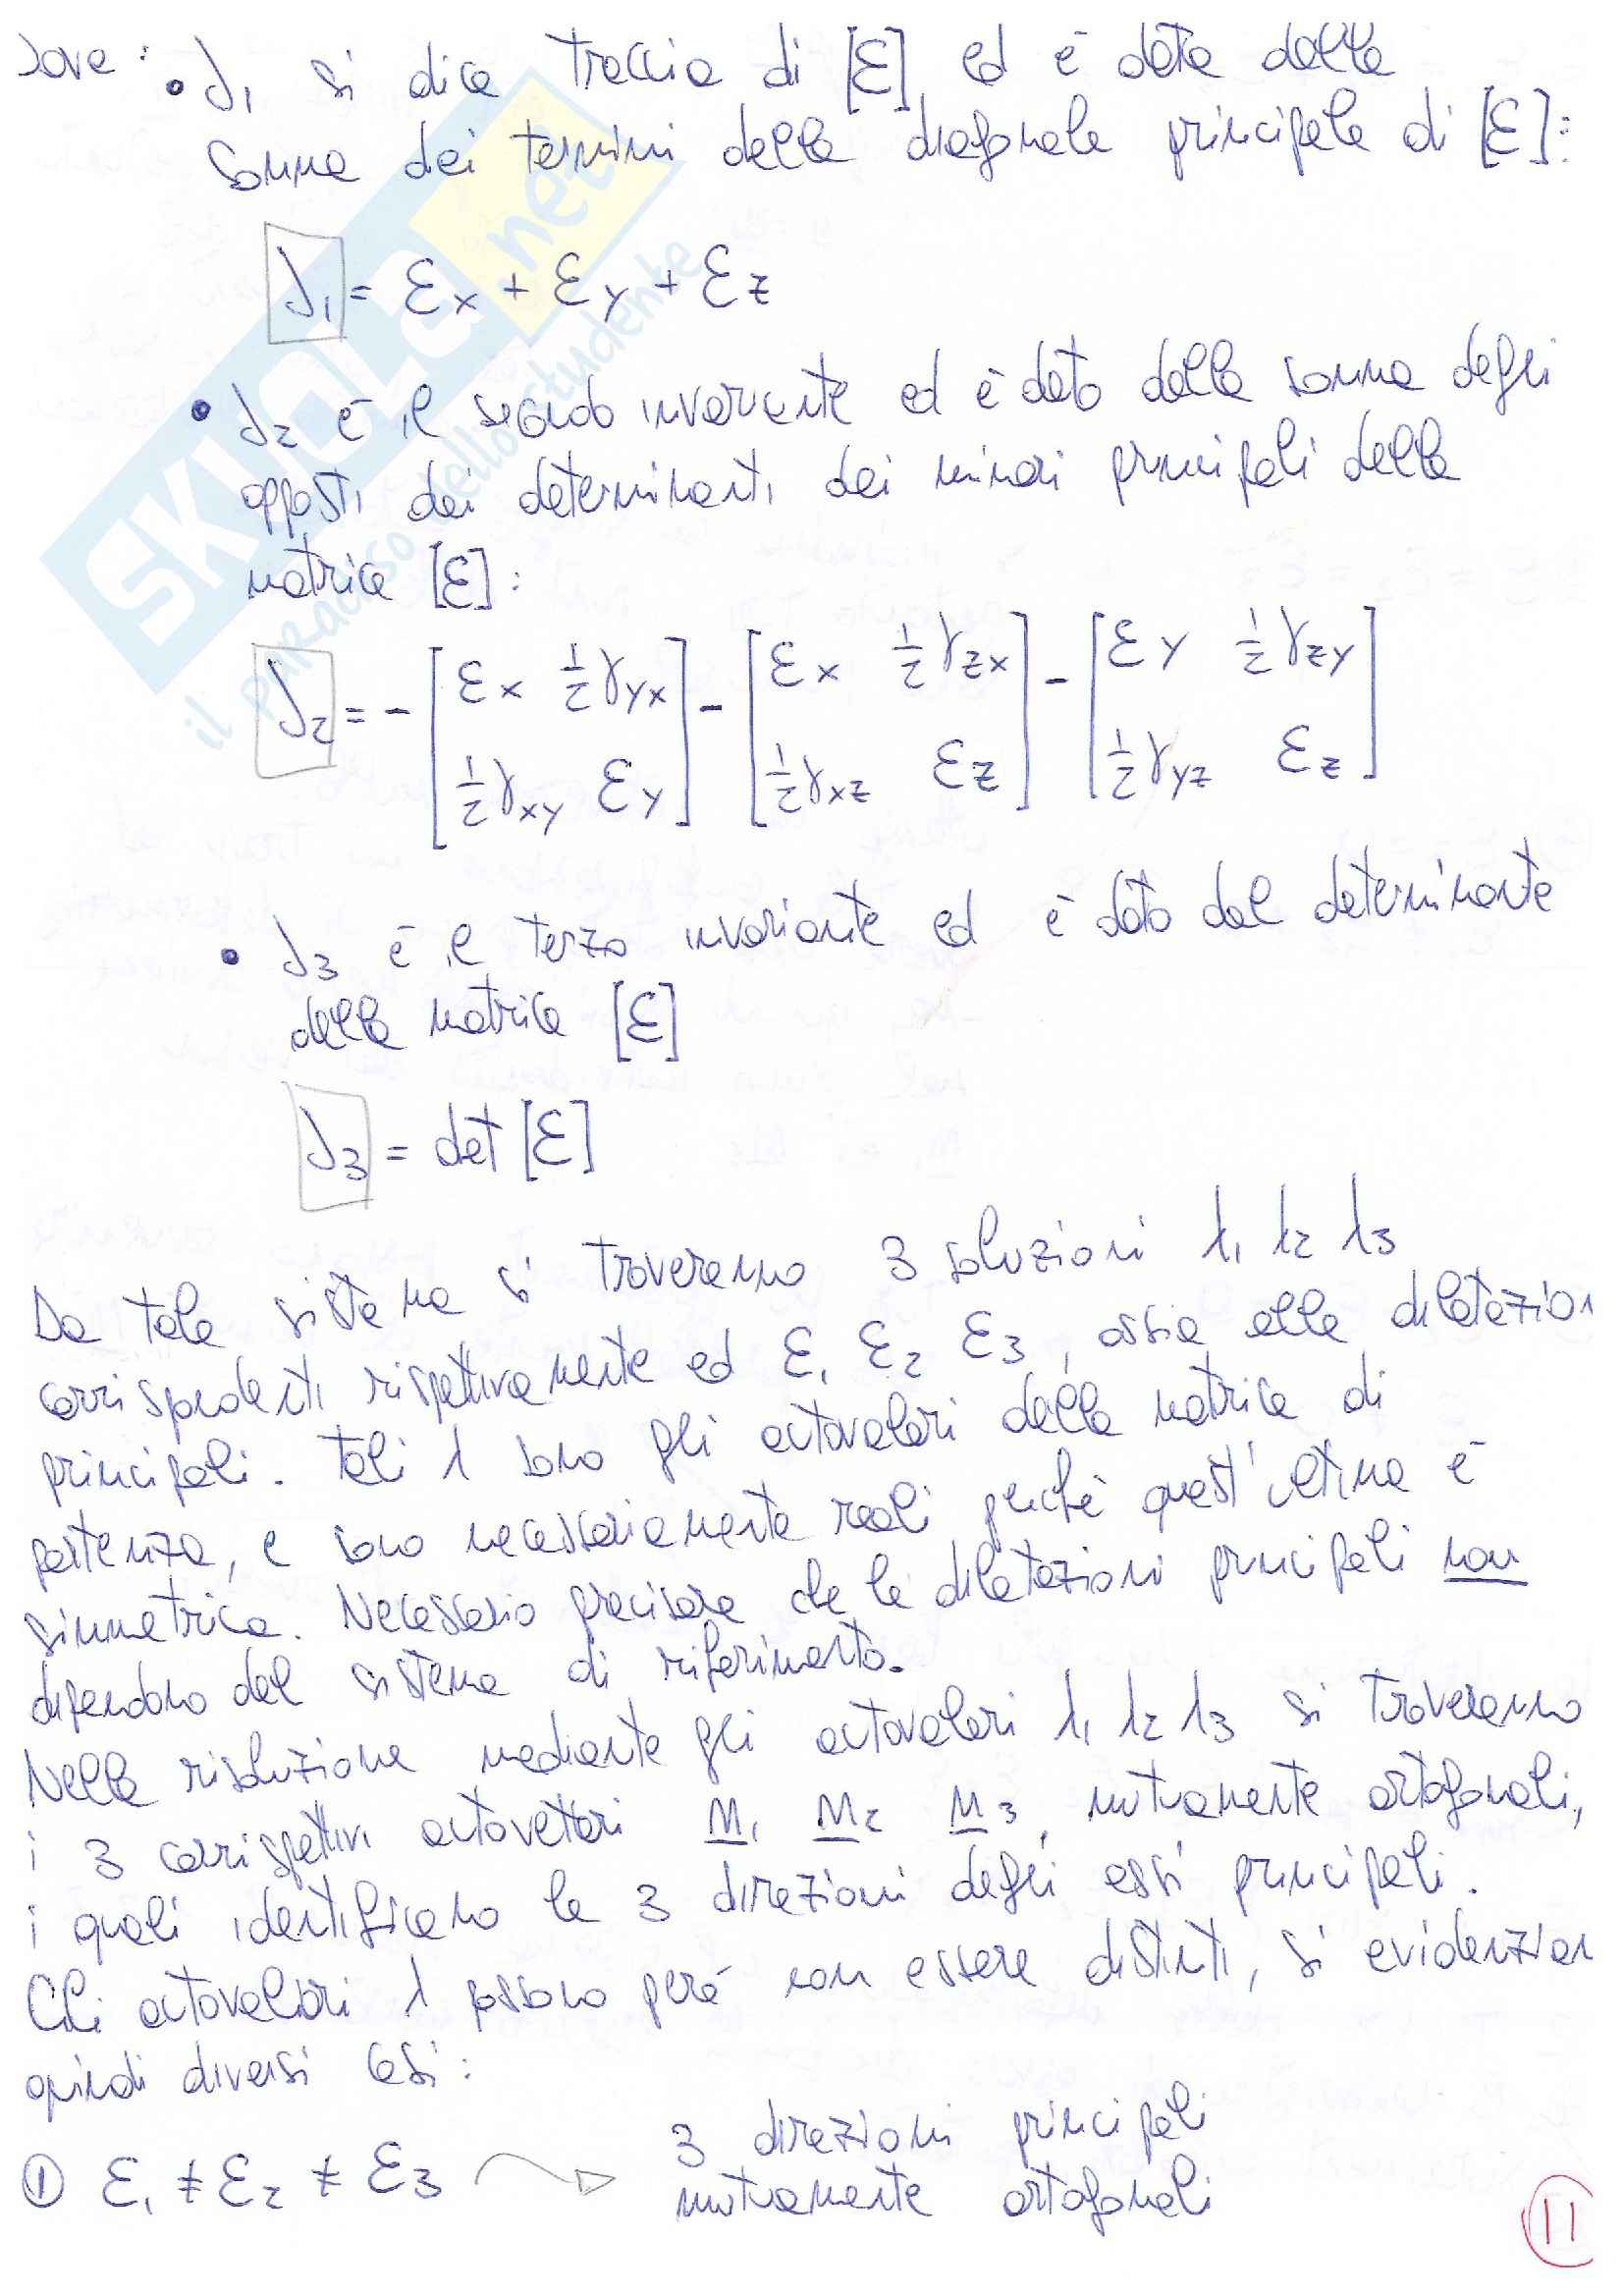 dove: • J₁ si dice traccia di [ε] ed è data dalla
somma dei termini della diagonale principale di [ε]:
J₁ = εx + εy + εz
• J₂ è il secondo invariante ed è dato dalla somma degli
opposti dei determinanti dei minori principali della
matrice [ε]:
J₂ = - [εx ½γyx] - [εx ½γzx] - [εy ½γzy]
[½γxy εy] [½γxz εz] [½γyz εz]
• J₃ è il terzo invariante ed è dato dal determinante
della matrice [ε]
J₃ = det [ε]
Da tale sistema si troveranno 3 soluzioni λ₁ λ₂ λ₃
corrispondenti rispettivamente ad ε₁ ε₂ ε₃, ossia alle dilatazion
principali. Tali λ sono gli autovalori della matrice di
partenza, e sono necessariamente reali perché quest'ultima è
simmetrica. Necessario precisare che le dilatazioni principali non
dipendono dal sistema di riferimento.
Nella risoluzione mediante gli autovalori λ₁ λ₂ λ₃ si troveranno
i 3 corrispettivi autovettori n₁ n₂ n₃, mutuamente ortogonali,
i quali identificano le 3 direzioni degli assi principali.
Gli autovalori λ possono però non essere distinti, si evidenzian
quindi diversi casi:
① ε₁ ≠ ε₂ ≠ ε₃ → 3 direzioni principali
mutuamente ortogonali
11
SKUOLA.net
il paradiso dello studente